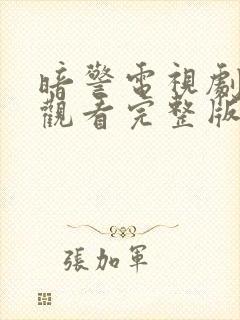 暗警電視劇
觀看完整版
張加軍